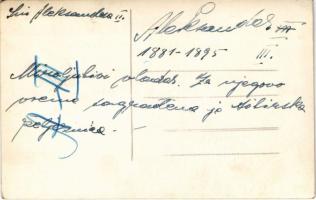 Sin Aleksandera II.
Aleksandar III
1881-1895 III.
Miroljubivi vladar. Za njegovo
vreme sagradjena je Sibirska
željeznica.